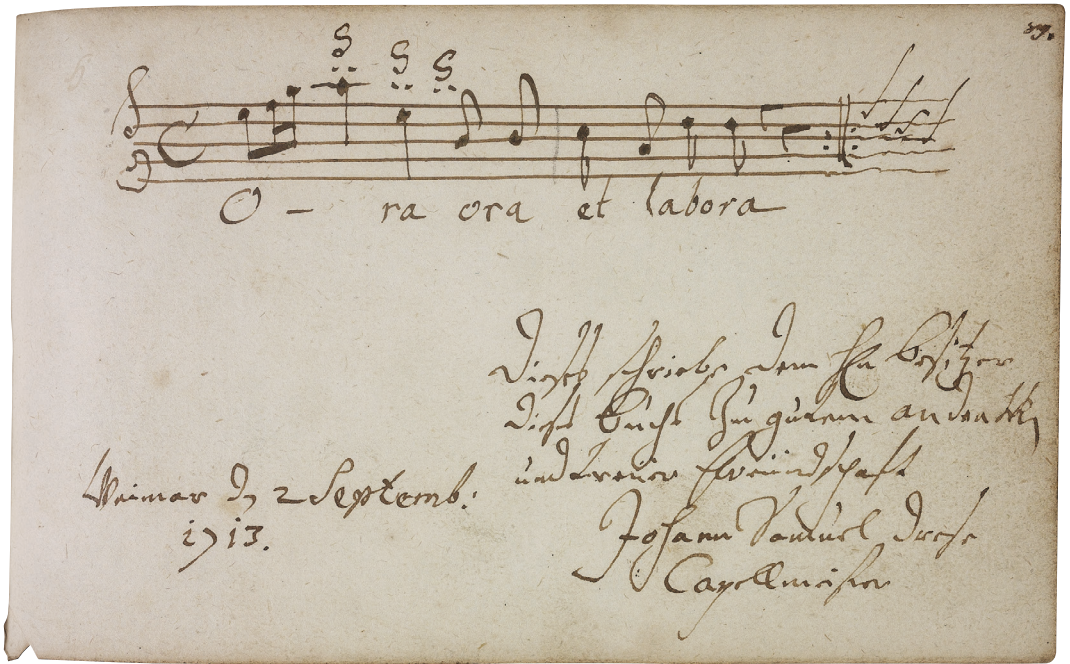 O – ra ora et labora
Dieses schriebe dem Hn besitzer
dieses buchs Zu gutem andencken
und treuer freündschafft
Weimar d 2 Septemb:
1713.
Johann Samuel Drese
Capellmeister